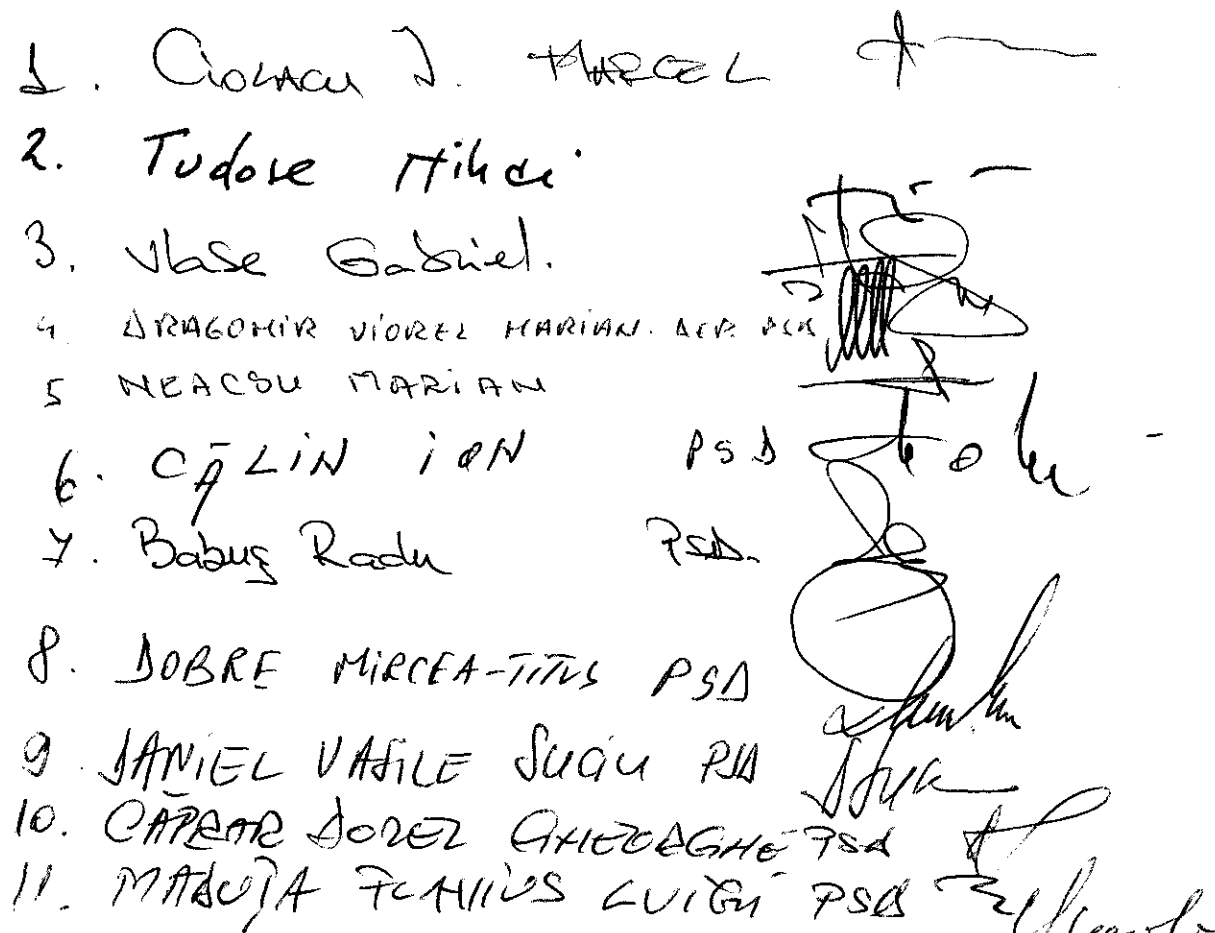 1. Ciolacu I. MARCEL
2. Tudose Mihai
3. Vlase Gabriel.
4 DRAGOMIR VIOREL MARIAN. DEP. PSD
5 NEACSU MARIAN
6. CĂLIN ION PSD
7. Babuș Radu PSD.
8. DOBRE MIRCEA-TITUS PSD
9 DANIEL VASILE SUCIU PSD
10. CĂPRAR DOREL GHEORGHE PSD
11. MĂDUȚA FLAVIUS LUIGI PSD